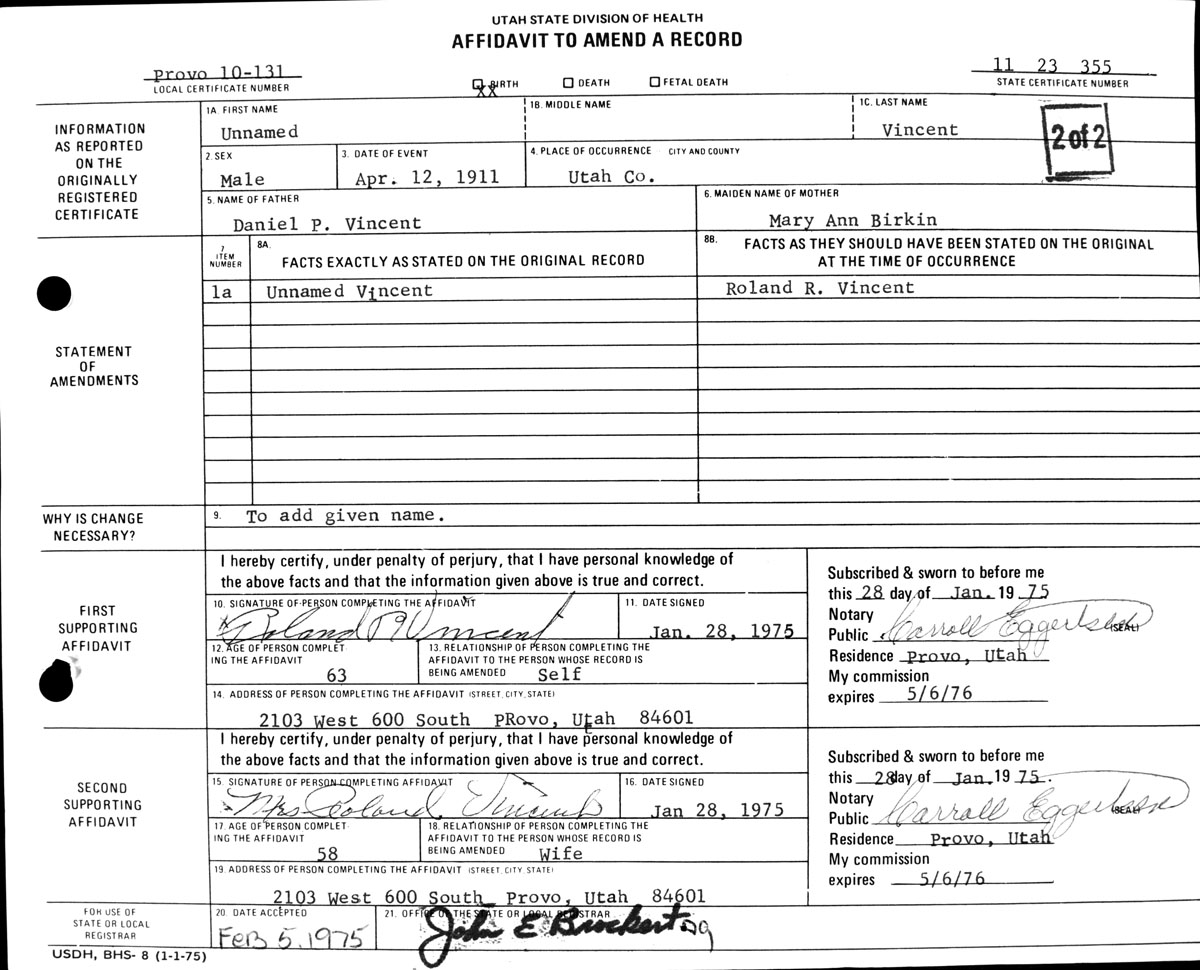 UTAH STATE DIVISION OF HEALTH
AFFIDAVIT TO AMEND A RECORD
Provo 10-131
LOCAL CERTIFICATE NUMBER
XX BIRTH DEATH FETAL DEATH
11 23 355
STATE CERTIFICATE NUMBER
INFORMATION
AS REPORTED
ON THE
ORIGINALLY
REGISTERED
CERTIFICATE
1A. FIRST NAME
Unnamed
1B. MIDDLE NAME
1C. LAST NAME
Vincent
2 of 2
2. SEX
Male
3. DATE OF EVENT
Apr. 12, 1911
4. PLACE OF OCCURRENCE CITY AND COUNTY
Utah Co.
5. NAME OF FATHER
Daniel P. Vincent
6. MAIDEN NAME OF MOTHER
Mary Ann Birkin
STATEMENT
OF
AMENDMENTS
7
ITEM
NUMBER
8A.
FACTS EXACTLY AS STATED ON THE ORIGINAL RECORD
8B. FACTS AS THEY SHOULD HAVE BEEN STATED ON THE ORIGINAL
AT THE TIME OF OCCURRENCE
1a Unnamed Vincent Roland R. Vincent
WHY IS CHANGE
NECESSARY?
9. To add given name.
FIRST
SUPPORTING
AFFIDAVIT
I hereby certify, under penalty of perjury, that I have personal knowledge of
the above facts and that the information given above is true and correct.
10. SIGNATURE OF PERSON COMPLETING THE AFFIDAVIT
x Roland R Vincent
11. DATE SIGNED
Jan. 28, 1975
12. AGE OF PERSON COMPLET-
ING THE AFFIDAVIT
63
13. RELATIONSHIP OF PERSON COMPLETING THE
AFFIDAVIT TO THE PERSON WHOSE RECORD IS
BEING AMENDED Self
14. ADDRESS OF PERSON COMPLETING THE AFFIDAVIT (STREET, CITY, STATE)
2103 West 600 South PRovo, Utah 84601
Subscribed & sworn to before me
this 28 day of Jan. 19 75
Notary
Public Carroll Eggertsen (SEAL)
Residence Provo, Utah
My commission
expires 5/6/76
SECOND
SUPPORTING
AFFIDAVIT
I hereby certify, under penalty of perjury, that I have personal knowledge of
the above facts and that the information given above is true and correct.
15. SIGNATURE OF PERSON COMPLETING AFFIDAVIT
Mrs Roland Vincent
16. DATE SIGNED
Jan 28, 1975
17. AGE OF PERSON COMPLET-
ING THE AFFIDAVIT
58
18. RELATIONSHIP OF PERSON COMPLETING THE
AFFIDAVIT TO THE PERSON WHOSE RECORD IS
BEING AMENDED Wife
19. ADDRESS OF PERSON COMPLETING THE AFFIDAVIT (STREET, CITY, STATE)
2103 West 600 South Provo, Utah 84601
Subscribed & sworn to before me
this 28day of Jan. 19 75.
Notary
Public Carroll Eggertsen (SEAL)
Residence Provo, Utah
My commission
expires 5/6/76
FOR USE OF
STATE OR LOCAL
REGISTRAR
20. DATE ACCEPTED
Feb 5, 1975
21. OFFICE OF THE STATE OR LOCAL REGISTRAR
John E Brockert
USDH, BHS- 8 (1-1-75)